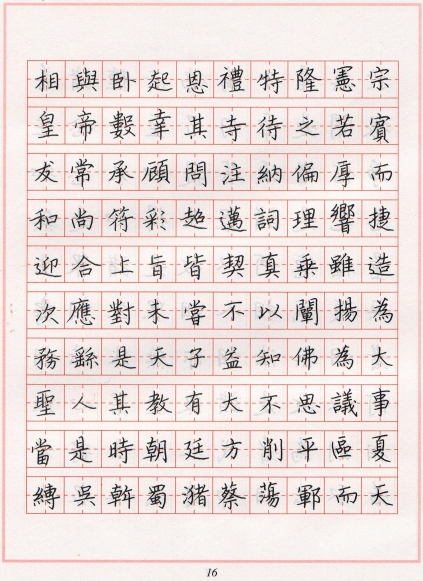 相與卧起恩禮特隆憲宗
皇帝數幸其寺待之若賓
友常承顧問注納偏厚而
和尚符彩超邁詞理響捷
迎合上旨皆契真乘雖造
次應對未嘗不以闡揚為
務繇是天子益知佛為大
聖人其教有大不思議事
當是時朝廷方削平區夏
縛吳斡蜀瀦蔡蕩鄆而天
16